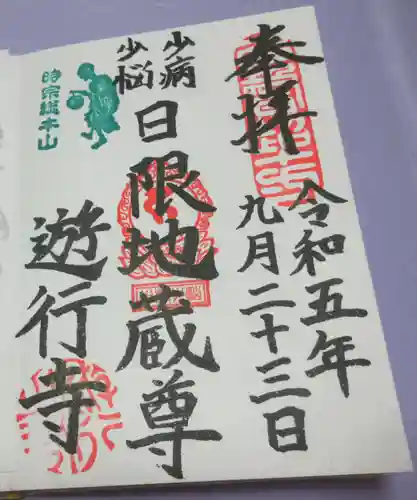 奉拝
令和五年
九月二十三日
少病
少悩
日限地蔵尊
遊行寺
時宗総本山